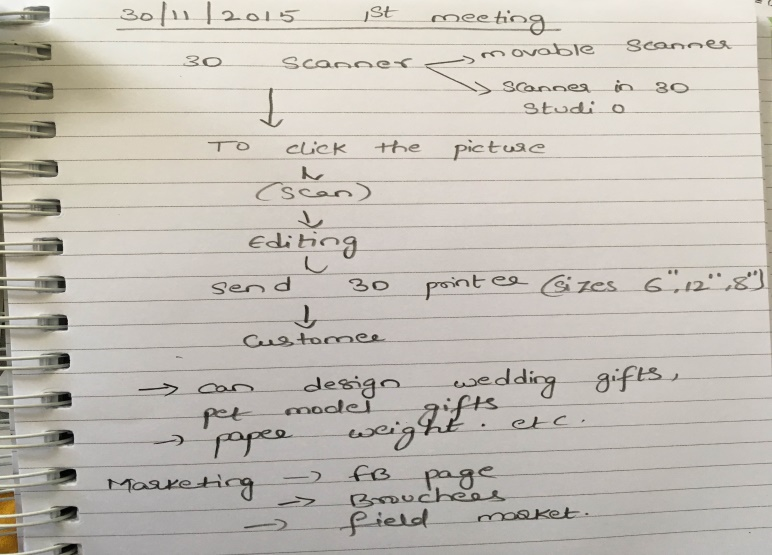 30/11/2015 1st meeting
30 Scanner → movable scanner
→ scanner in 30
Studio
↓
To click the picture
↓
(scan)
↓
Editing
↓
send 30 printer (sizes 6",12",8")
↓
Customer
→ can design wedding gifts,
pet model gifts
→ paper weight. etc.
Marketing → FB page
→ Brouchers
→ field market.